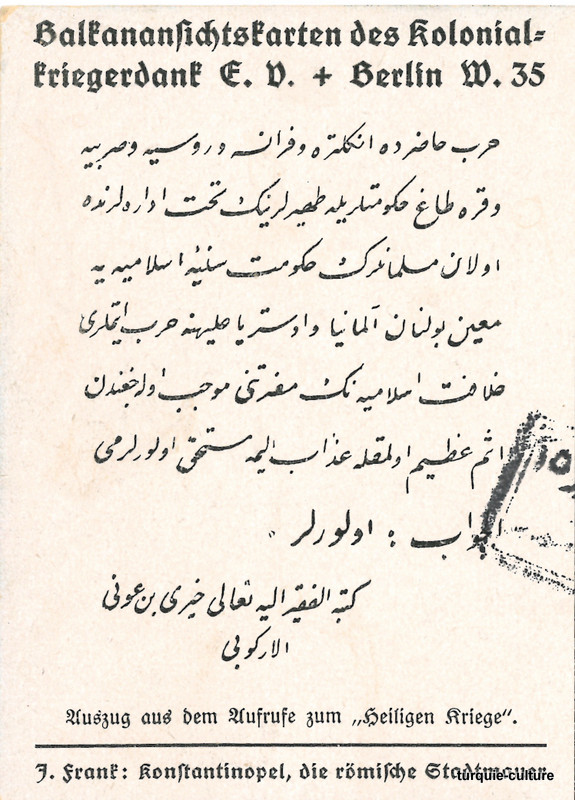 Balkanansichtskarten des Kolonial-
kriegerdank E. V. + Berlin W. 35
حرب حاضرده انكلتره وفرانسه وروسيه وصربيه
وقره طاغ حكومتلريله ظهيرلرينك تحت اداره لرنده
اولان مسلمانلرك حكومت سنيهٔ اسلاميه يه
معين بولنان آلمانيا واوستريا عليهنه حرب ايتملرى
خلافت اسلاميه نك مضرتنى موجب اوله جغندن
اثم عظيم اولمغله عذاب اليمه مستحق اولورلرمى
الجواب : اولورلر .
كتبه الفقير اليه تعالى خيرى بن عونى
الاركوبى
Auszug aus dem Aufrufe zum „Heiligen Kriege“.
J. Frank: Konstantinopel, die römische Stadtmauer
turquie-culture